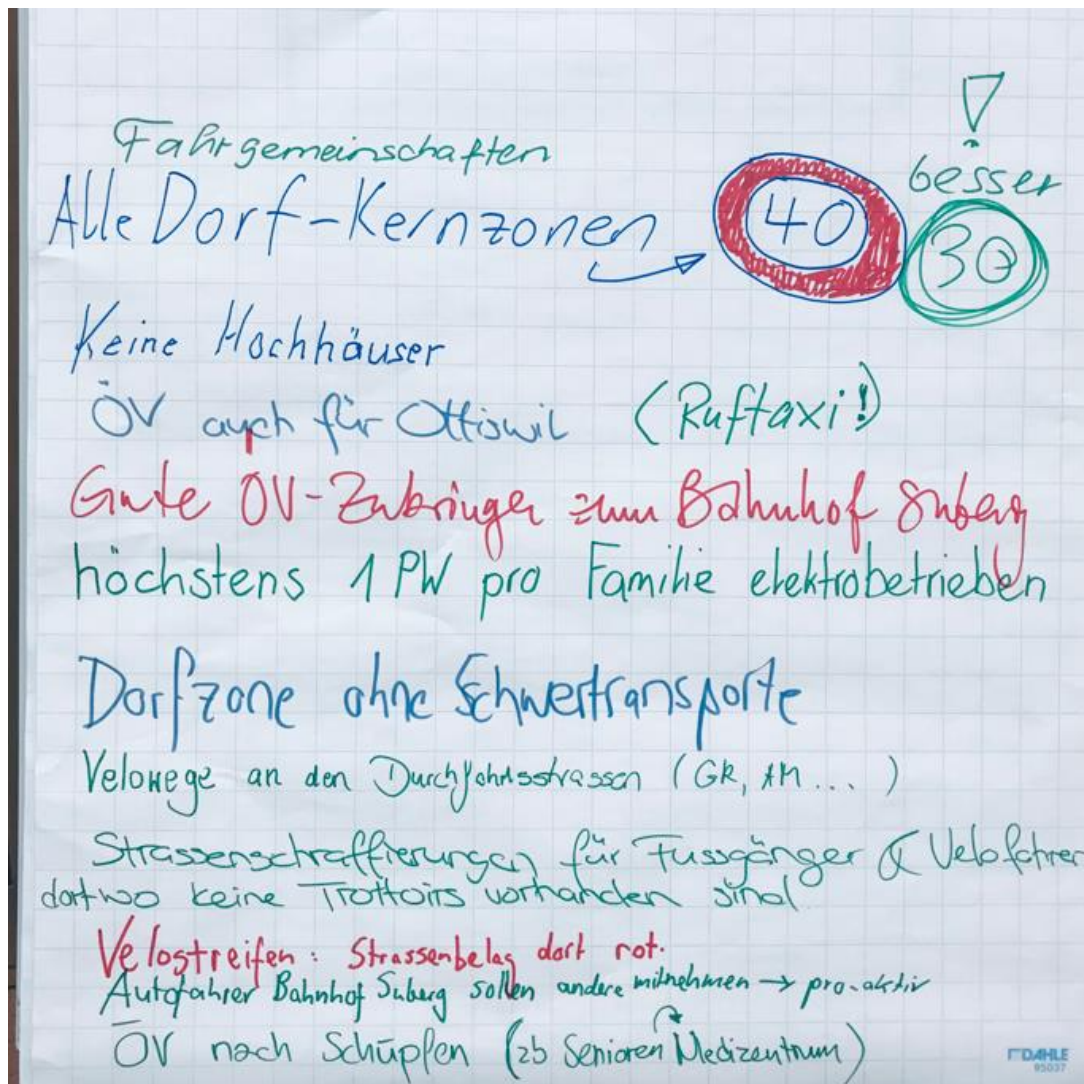 Fahrgemeinschaften
!
besser
Alle Dorf-Kernzonen → 40 30
Keine Hochhäuser
ÖV auch für Ottiswil (Ruftaxi!)
Gute ÖV-Zubringer zum Bahnhof Suberg
höchstens 1 PW pro Familie elektrobetrieben
Dorfzone ohne Schwertransporte
Velowege an den Durchfahrtsstrassen (GR, AM...)
Strassenschraffierungen für Fussgänger & Velofahrer
dort wo keine Trottoirs vorhanden sind
Velostreifen: Strassenbelag dort rot.
Autofahrer Bahnhof Suberg sollen andere mitnehmen → pro-aktiv
ÖV nach Schüpfen (zb Senioren Medizentrum)
DAHLE
95037